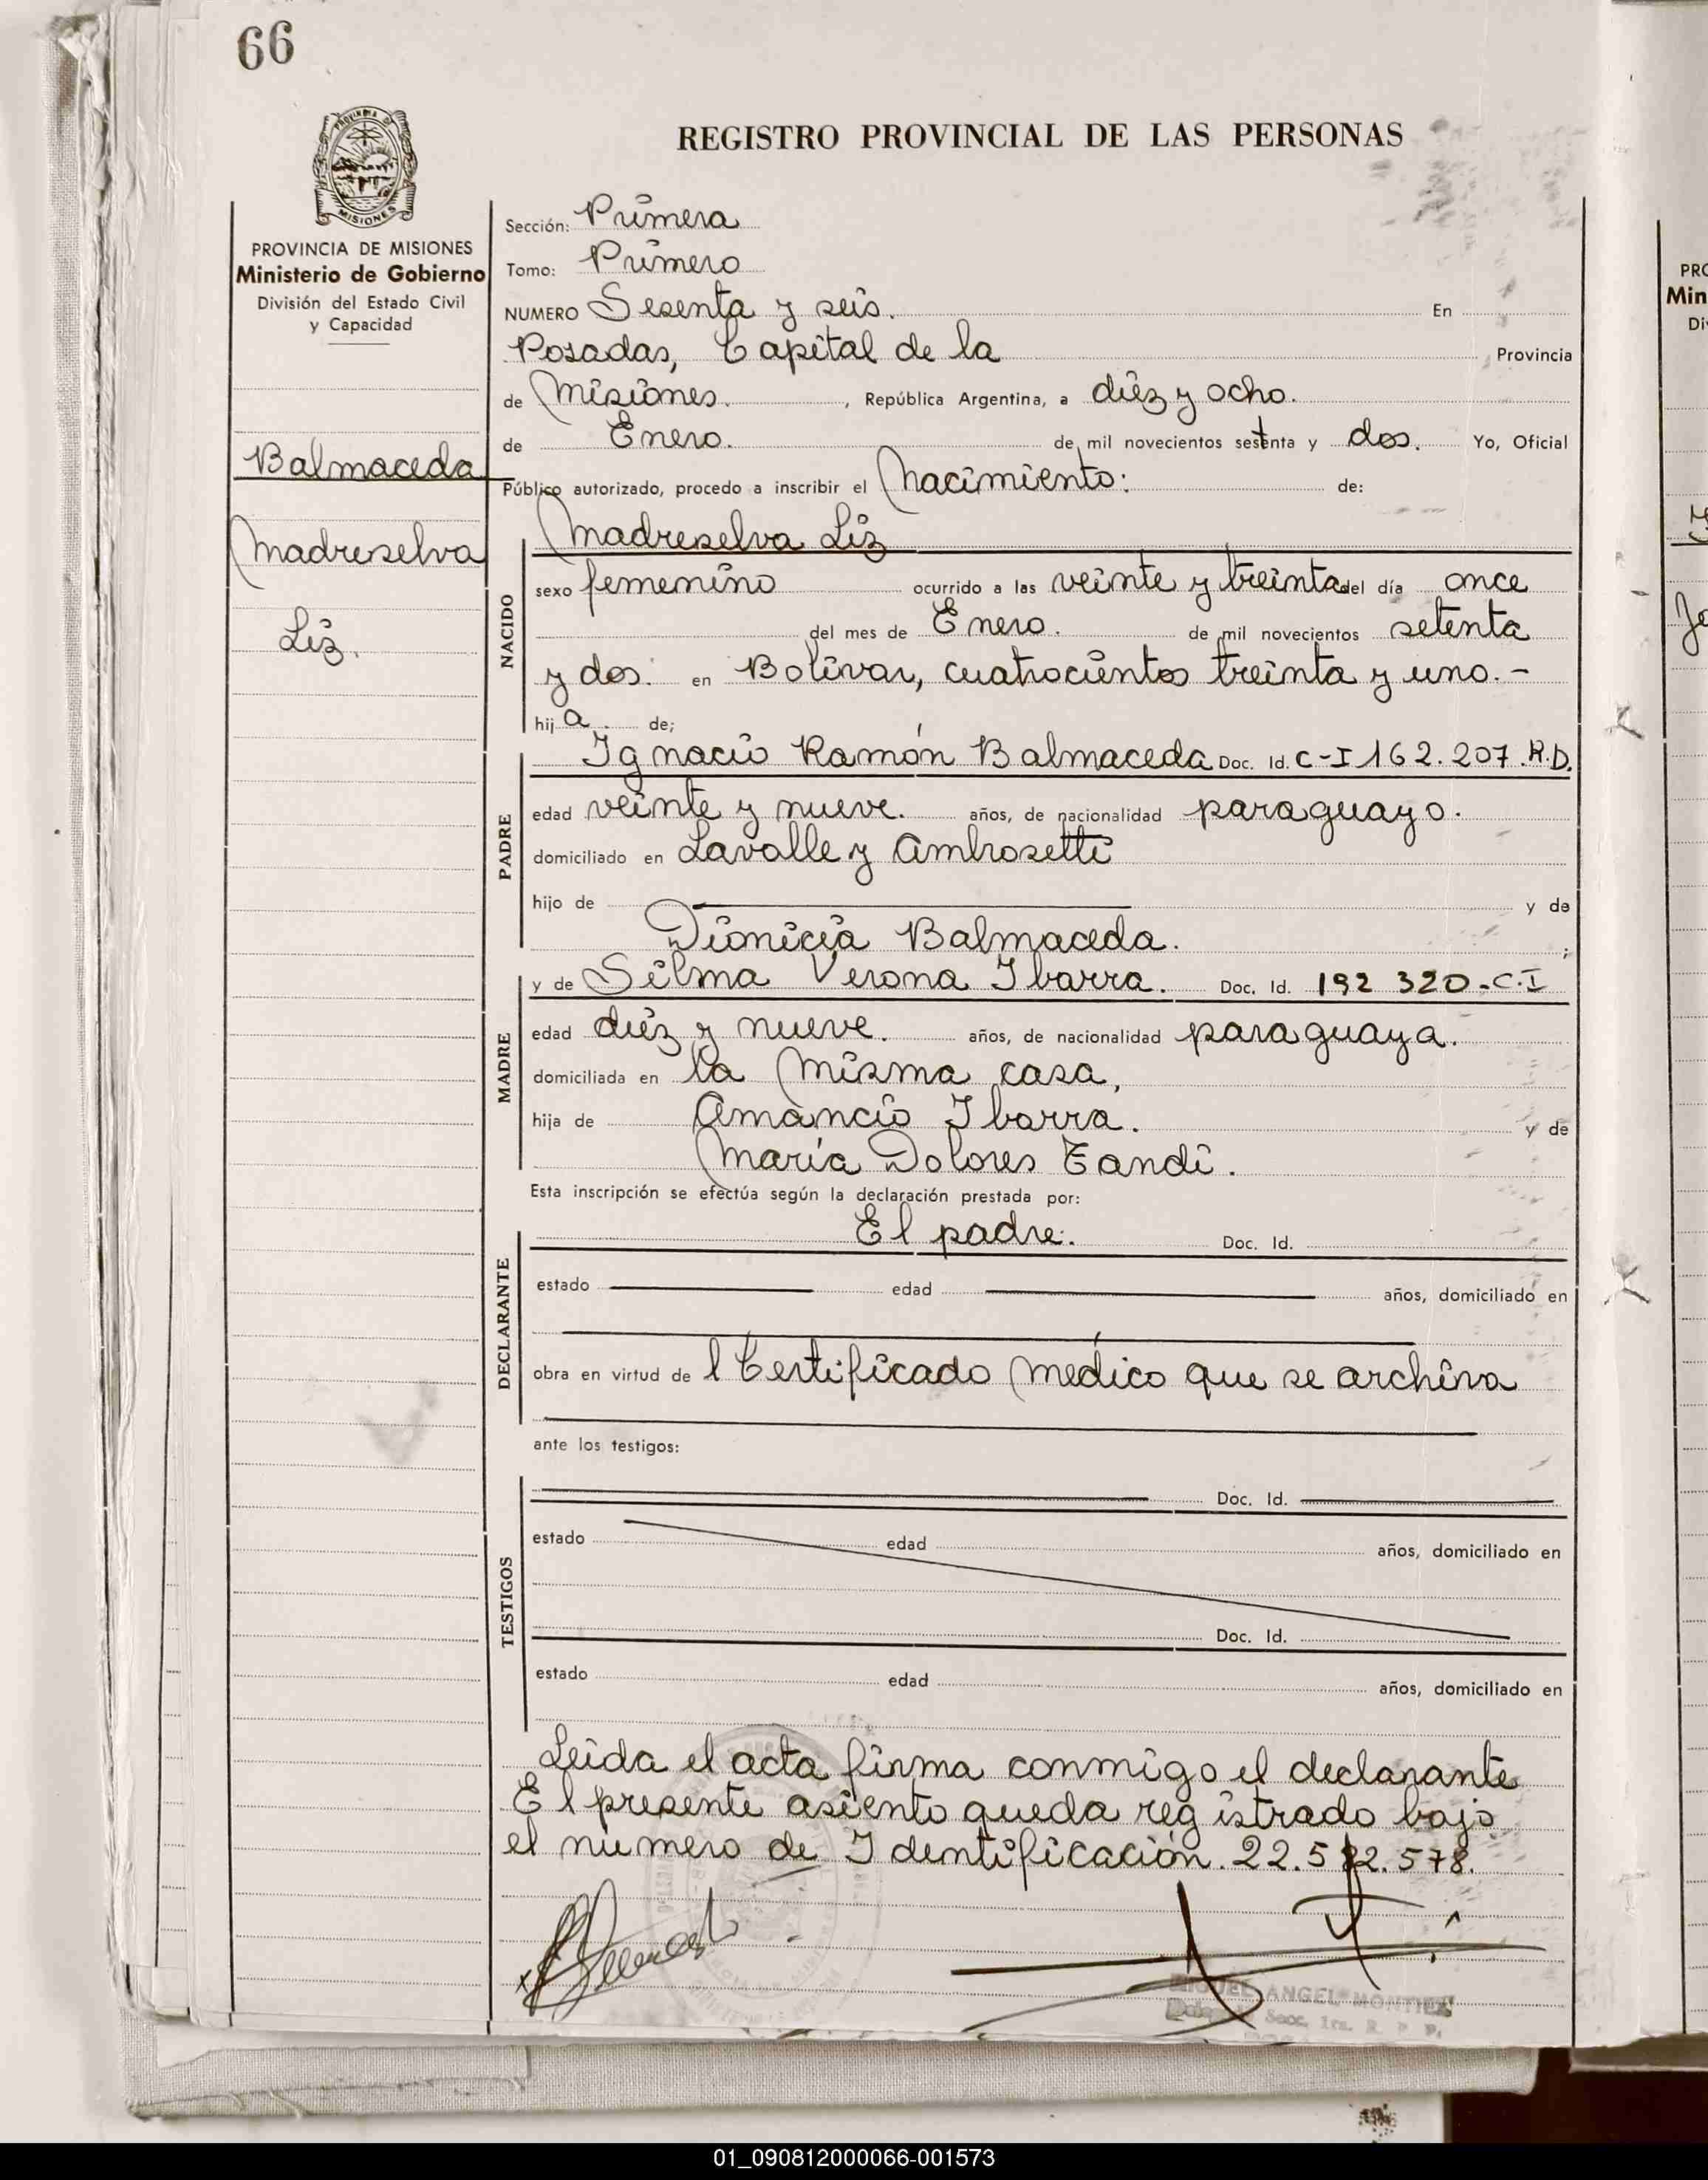 66
PROVINCIA DE
MISIONES
REGISTRO PROVINCIAL DE LAS PERSONAS
PROVINCIA DE MISIONES
Ministerio de Gobierno
División del Estado Civil
y Capacidad
Balmaceda
Madreselva
Liz.
Sección: Primera
Tomo: Primero
NUMERO Sesenta y seis. En
Posadas, Capital de la Provincia
de Misiones. , República Argentina, a diéz y ocho.
de Enero. de mil novecientos setenta y dos. Yo, Oficial
Público autorizado, procedo a inscribir el Nacimiento: de:
NACIDO
Madreselva Liz
sexo femenino ocurrido a las veinte y treinta del día once
del mes de Enero. de mil novecientos setenta
y dos. en Bolívar, cuatrocientos treinta y uno.-
hij a. de;
PADRE
Ignacio Ramón Balmaceda Doc. Id. C-I 162.207.R.D.
edad veinte y nueve. años, de nacionalidad paraguayo.
domiciliado en Lavalle y Ambrosetti
hijo de y de
Dionicia Balmaceda. ;
MADRE
y de Silma Verona Ibarra. Doc. Id. 192 320-C.I
edad diéz y nueve. años, de nacionalidad paraguaya.
domiciliada en la misma casa,
hija de Amancio Ibarra. y de
María Dolores Tandi.
Esta inscripción se efectúa según la declaración prestada por:
DECLARANTE
El padre. Doc. Id.
estado edad años, domiciliado en
obra en virtud de l Certificado médico que se archiva
ante los testigos:
TESTIGOS
Doc. Id.
estado edad años, domiciliado en
Doc. Id.
estado edad años, domiciliado en
Leida el acta firma conmigo el declarante
El presente asiento queda registrado bajo
el numero de Identificación. 22.582.578.
MIGUEL ANGEL MONTIEL
Secc. 1ra. R. P. P.
PRO
Min
Di
01_090812000066-001573